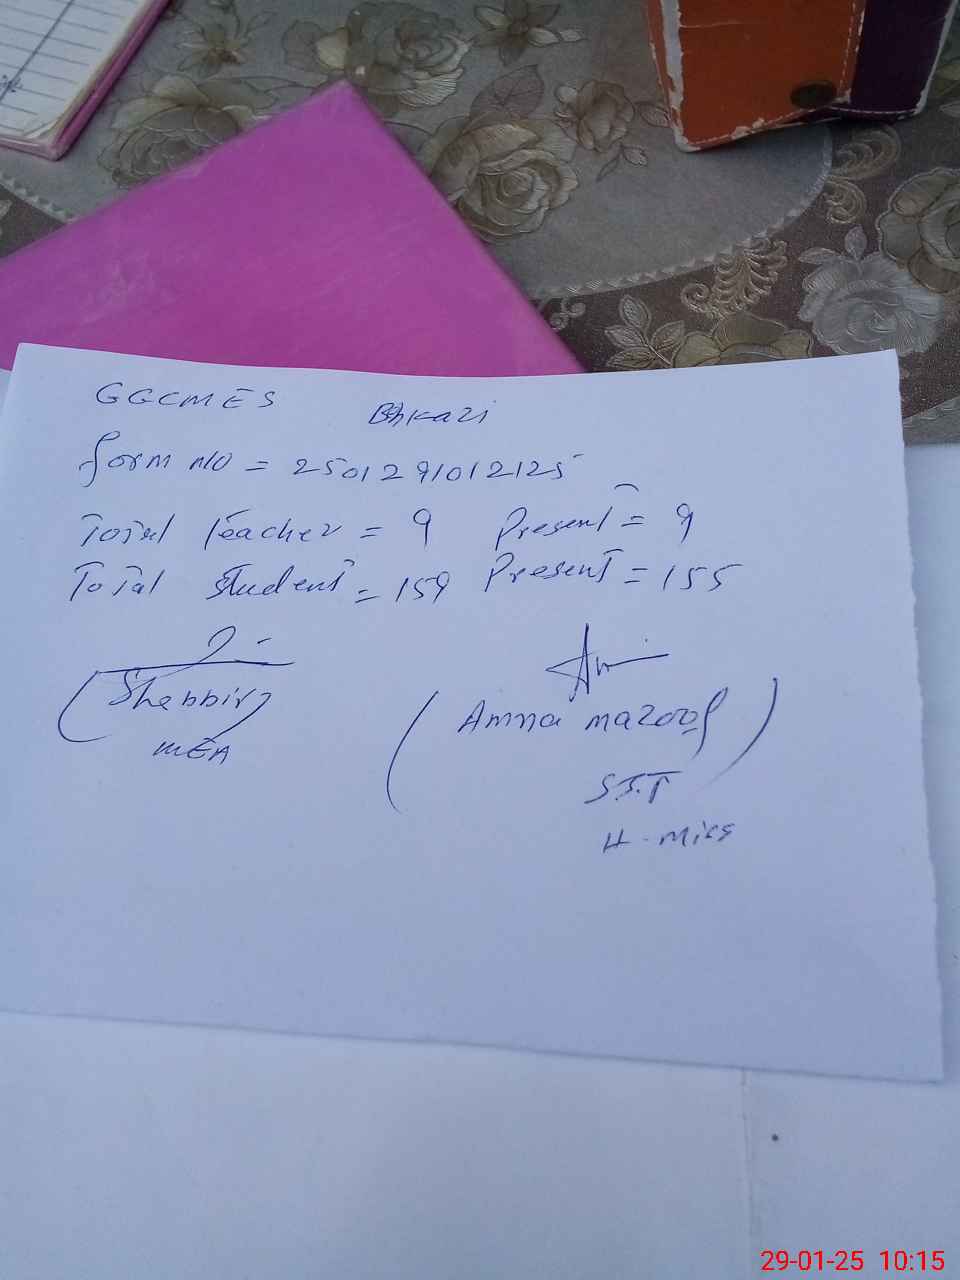 GGCMES Bhkazi
form no = 2501291012125
Total Teacher = 9 Present = 9
Total Student = 159 Present = 155
(Shabbir)
MEA
(Amna mazoof)
S.S.T
H-miss
29-01-25 10:15